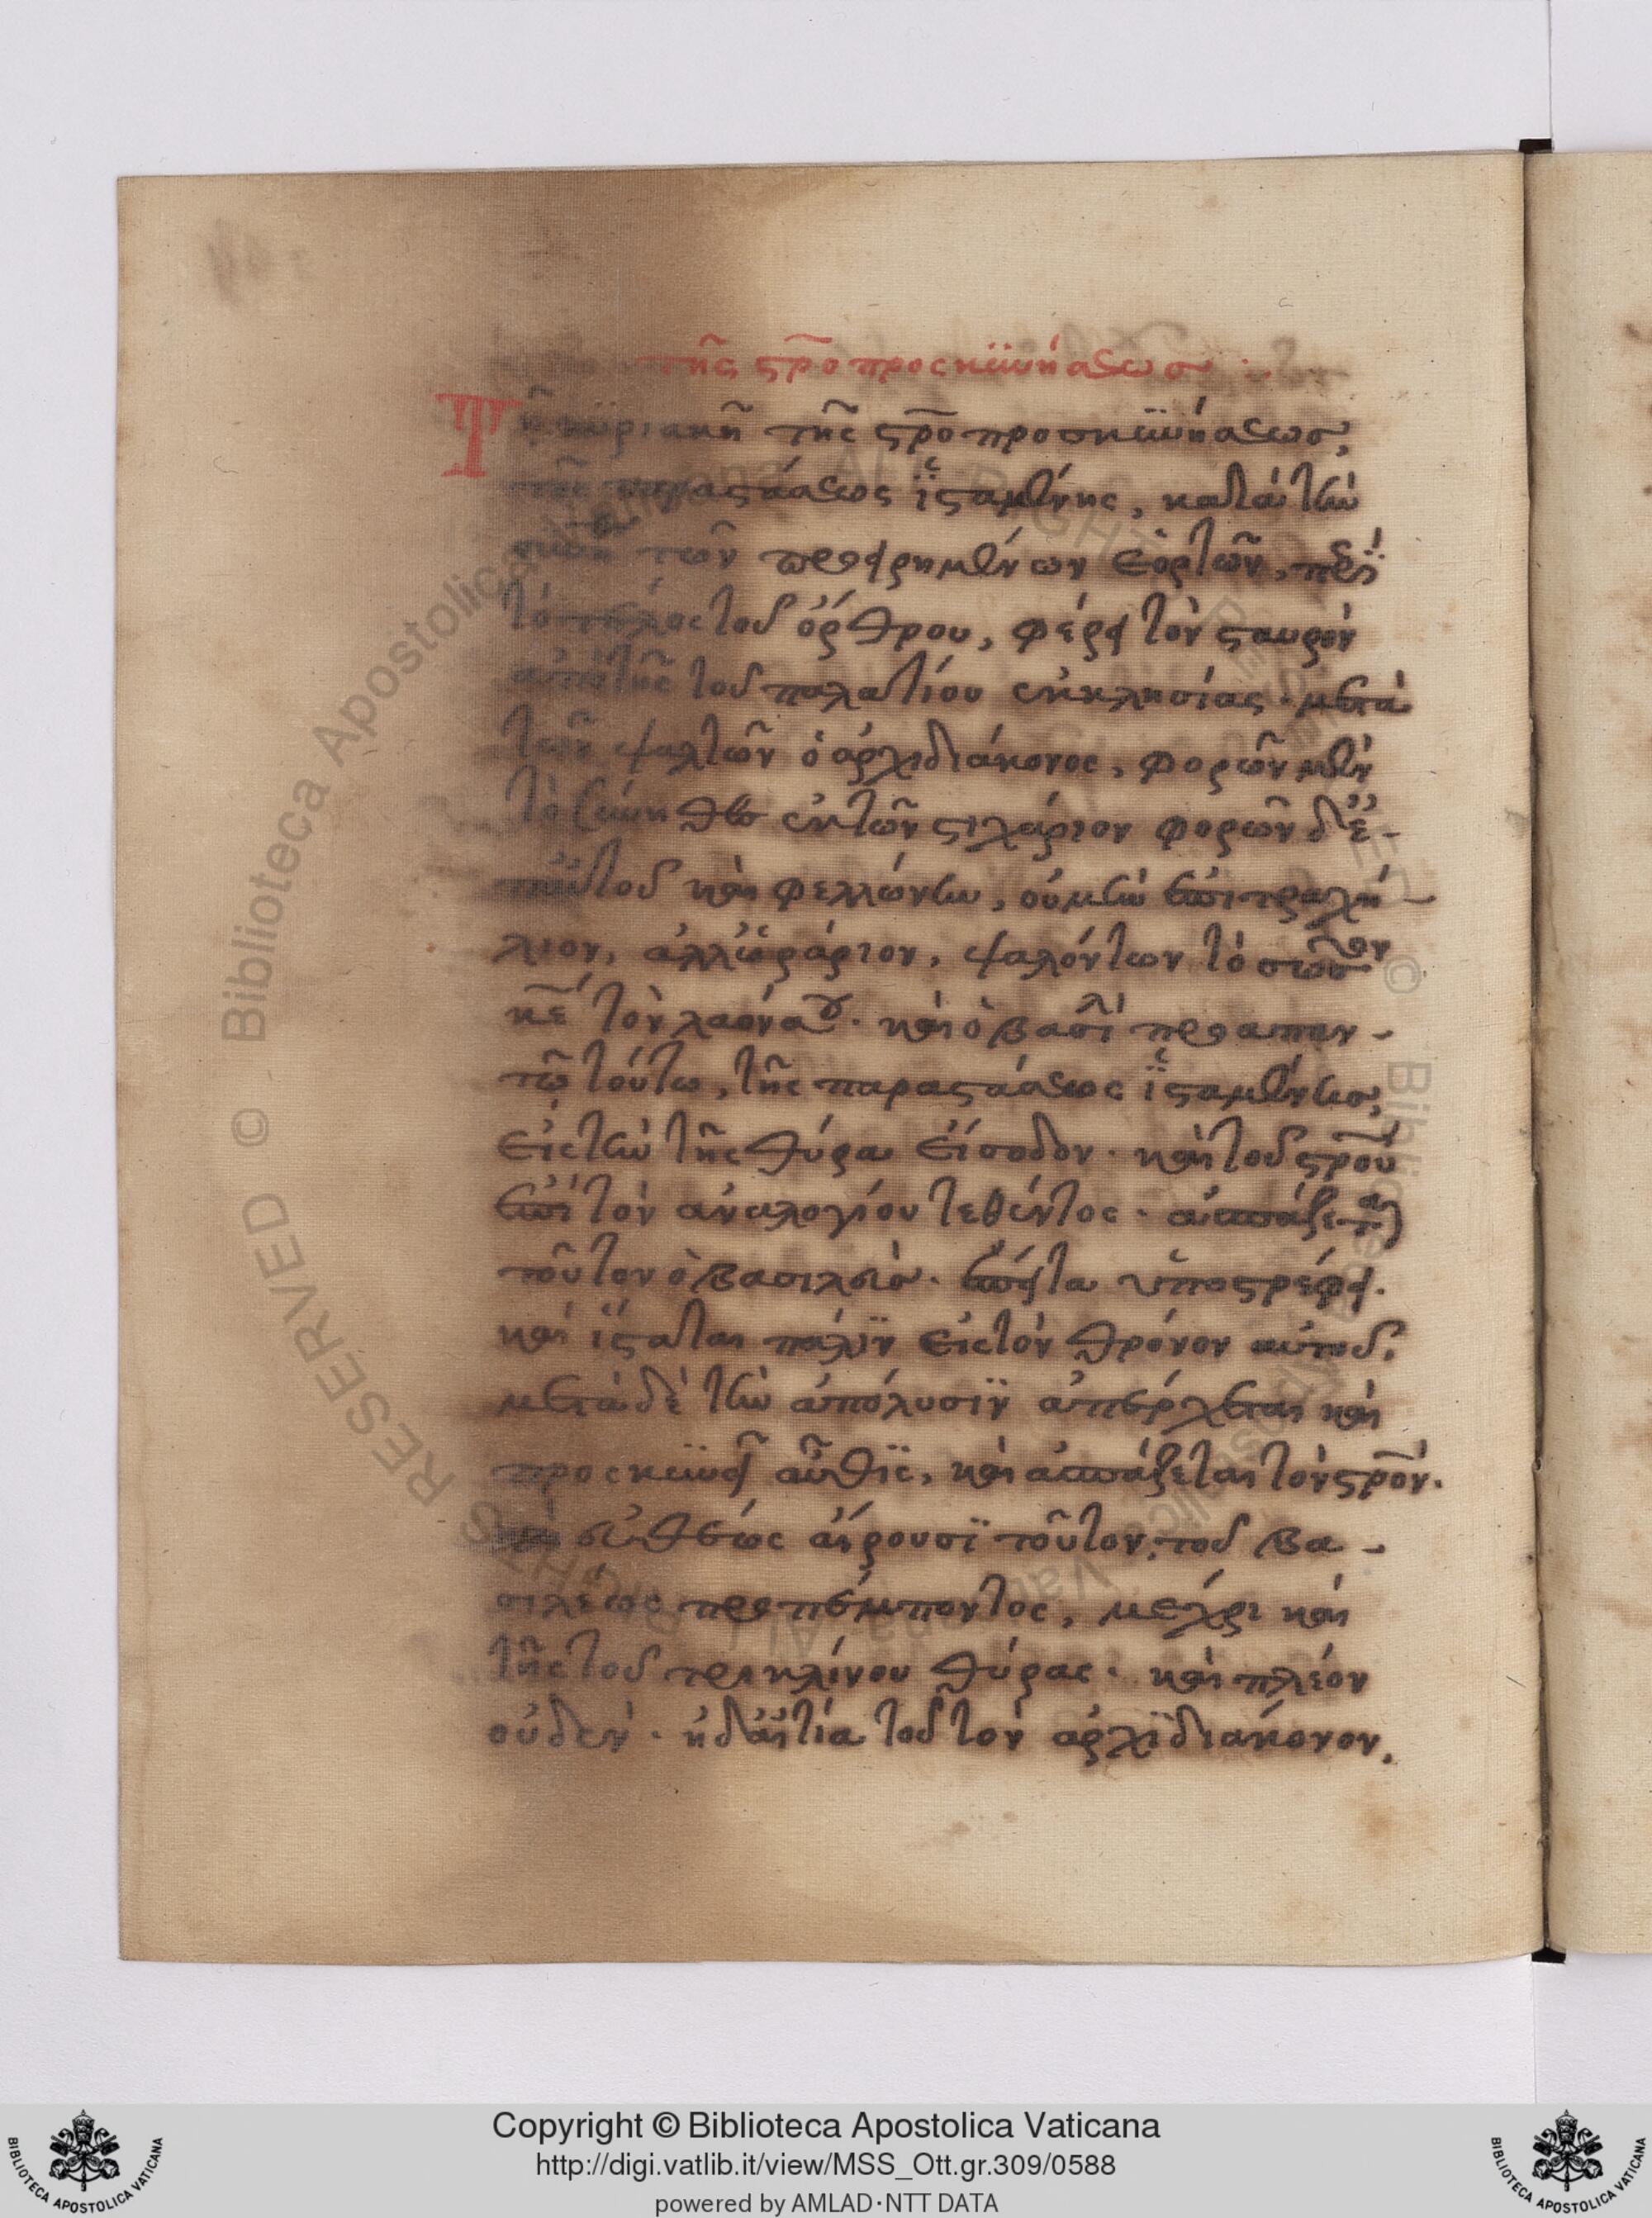 τῆς σ̅ρ̅ο προσκϋνήσεως :
Τῆ κϋριακῆ τῆς σ̅ρ̅ο προσκϋνήσεως,
τῆς παραστάσεως ϊσταμένης, κατὰ τὴν
τῶν προειρημένων ἑορτῶν, περὶ
τὸ τέλος τοῦ ὄρθρου, φέρει τὸν σταυρὸν
ἀπὸ τῆς τοῦ παλατίου ἐκκλησίας· μετὰ
τῶν ψαλτῶν ὁ ἀρχιδιάκονος, φορῶν μὲν
τὸ σύνηθες ἐκτῶν στιχάριον φορῶν δὲ ἐ-
παὐτοῦ καὶ φελλώνην, οὐ μὴν ἐπιτραχή-
λιον, ἀλλ' ὡράριον, ψαλόντων τὸ σῶσον
κ̅ε̅ τὸν λαόν σου· καὶ ὁ βασιλ προαπαν-
τᾷ τούτω, τῆς παραστάσεως ϊσταμένης,
εἰς τὴν τῆς θύρα εἴσοδον· καὶ τοῦ σ̅ρ̅οῦ
ἐπὶ τὸν ἀναλογίου τεθέντος· ἀσπάζεται
τοῦτον ὁ βασιλεὺς· ἔπειτα ὑποστρέφει·
καὶ ἵσταται πάλϊν εἰς τὸν θρόνον αὐτοῦ,
μετὰ δὲ τὴν ἀπόλυσϊν ἀπέρχεται καὶ
προσκϋνεῖ αὖθϊς, καὶ ἀσπάζεται τὸν σ̅ρ̅όν·
καὶ εὐθέως αἴρουσϊ τοῦτον, τοῦ βα-
σιλέως προπέμποντος, μέχρι καὶ
τῆς τοῦ τρικλίνου θύρας· καὶ πλέον
οὐδέν· ἡ δ' αἰτία τοῦ τὸν ἀρχϊδιάκονον,
Copyright © Biblioteca Apostolica Vaticana
http://digi.vatlib.it/view/MSS_Ott.gr.309/0588
powered by AMLAD·NTT DATA